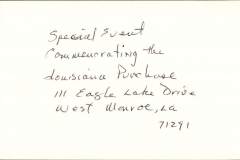 Special Event
Commemorating the
Louisiana Purchase
111 Eagle Lake Drive
West Monroe, La
71291